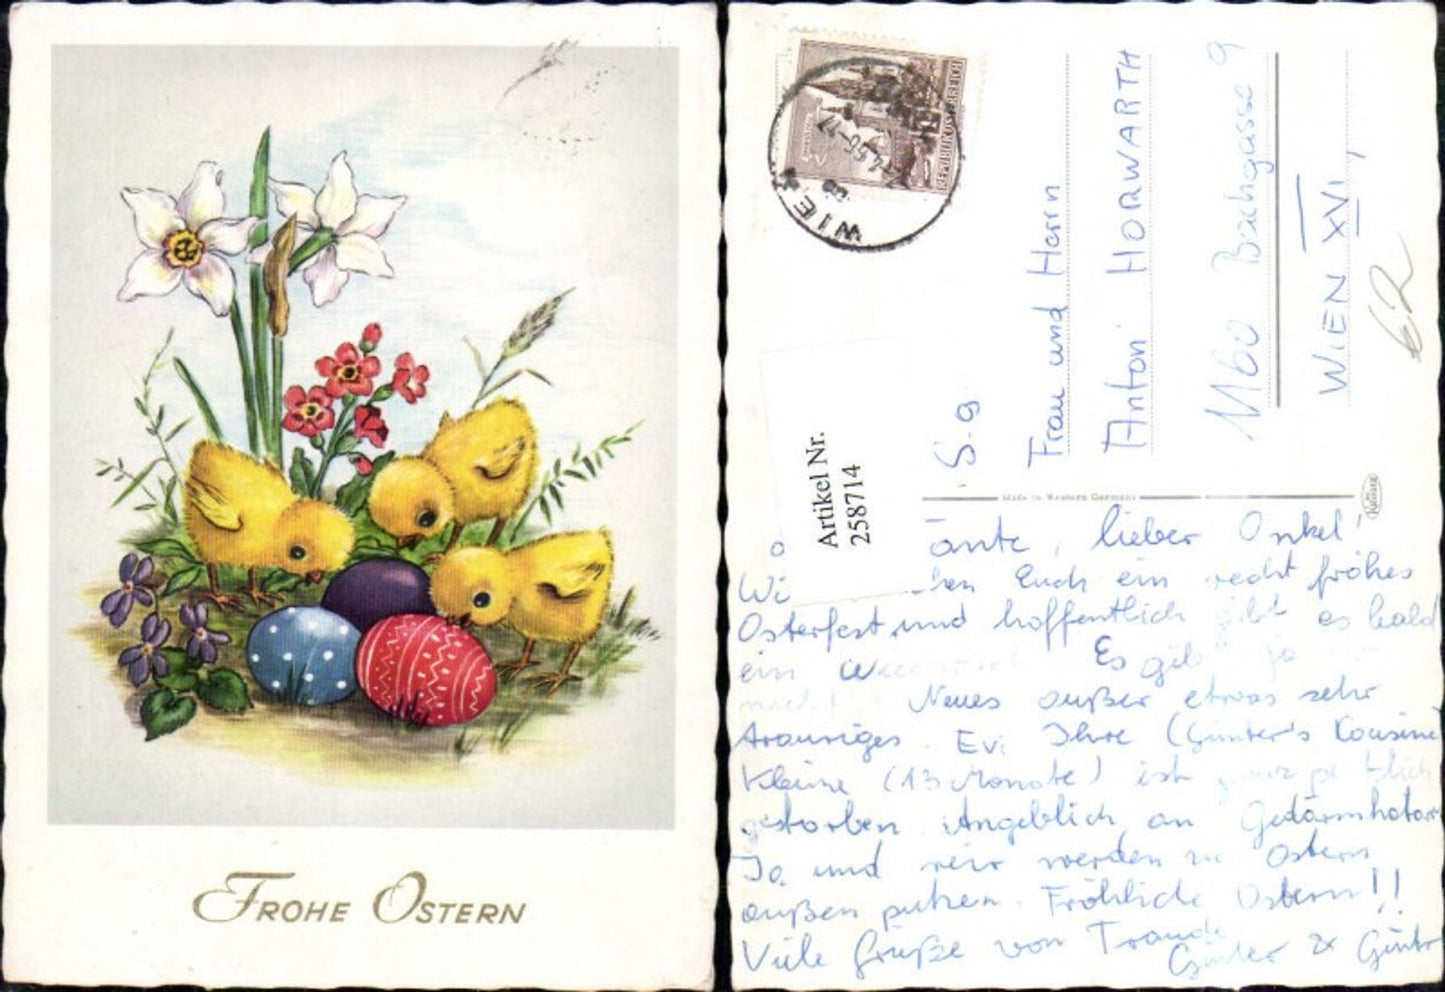 FROHE OSTERN
REPUBLIK ÖSTERREICH
WIEN
Artikel Nr.
258714
S. g.
Frau und Herrn
Anton HORWARTH
1160 Bachgasse 9
WIEN XVI,
Made in Western Germany
Krüger
ante, lieber Onkel!
Wi hen Euch ein recht frohes
Osterfest und hoffentlich gibt es bald
ein Es gibt ja
Neues außer etwas sehr
trauriges. Evi Ihre (Günter's Kousine
Kleine (13 Monate) ist
gestorben. Angeblich an
Ja und wir werden zu Ostern
außen putzen. Fröhliche Ostern!!
Viele Grüße von Traude
Günter & Günter